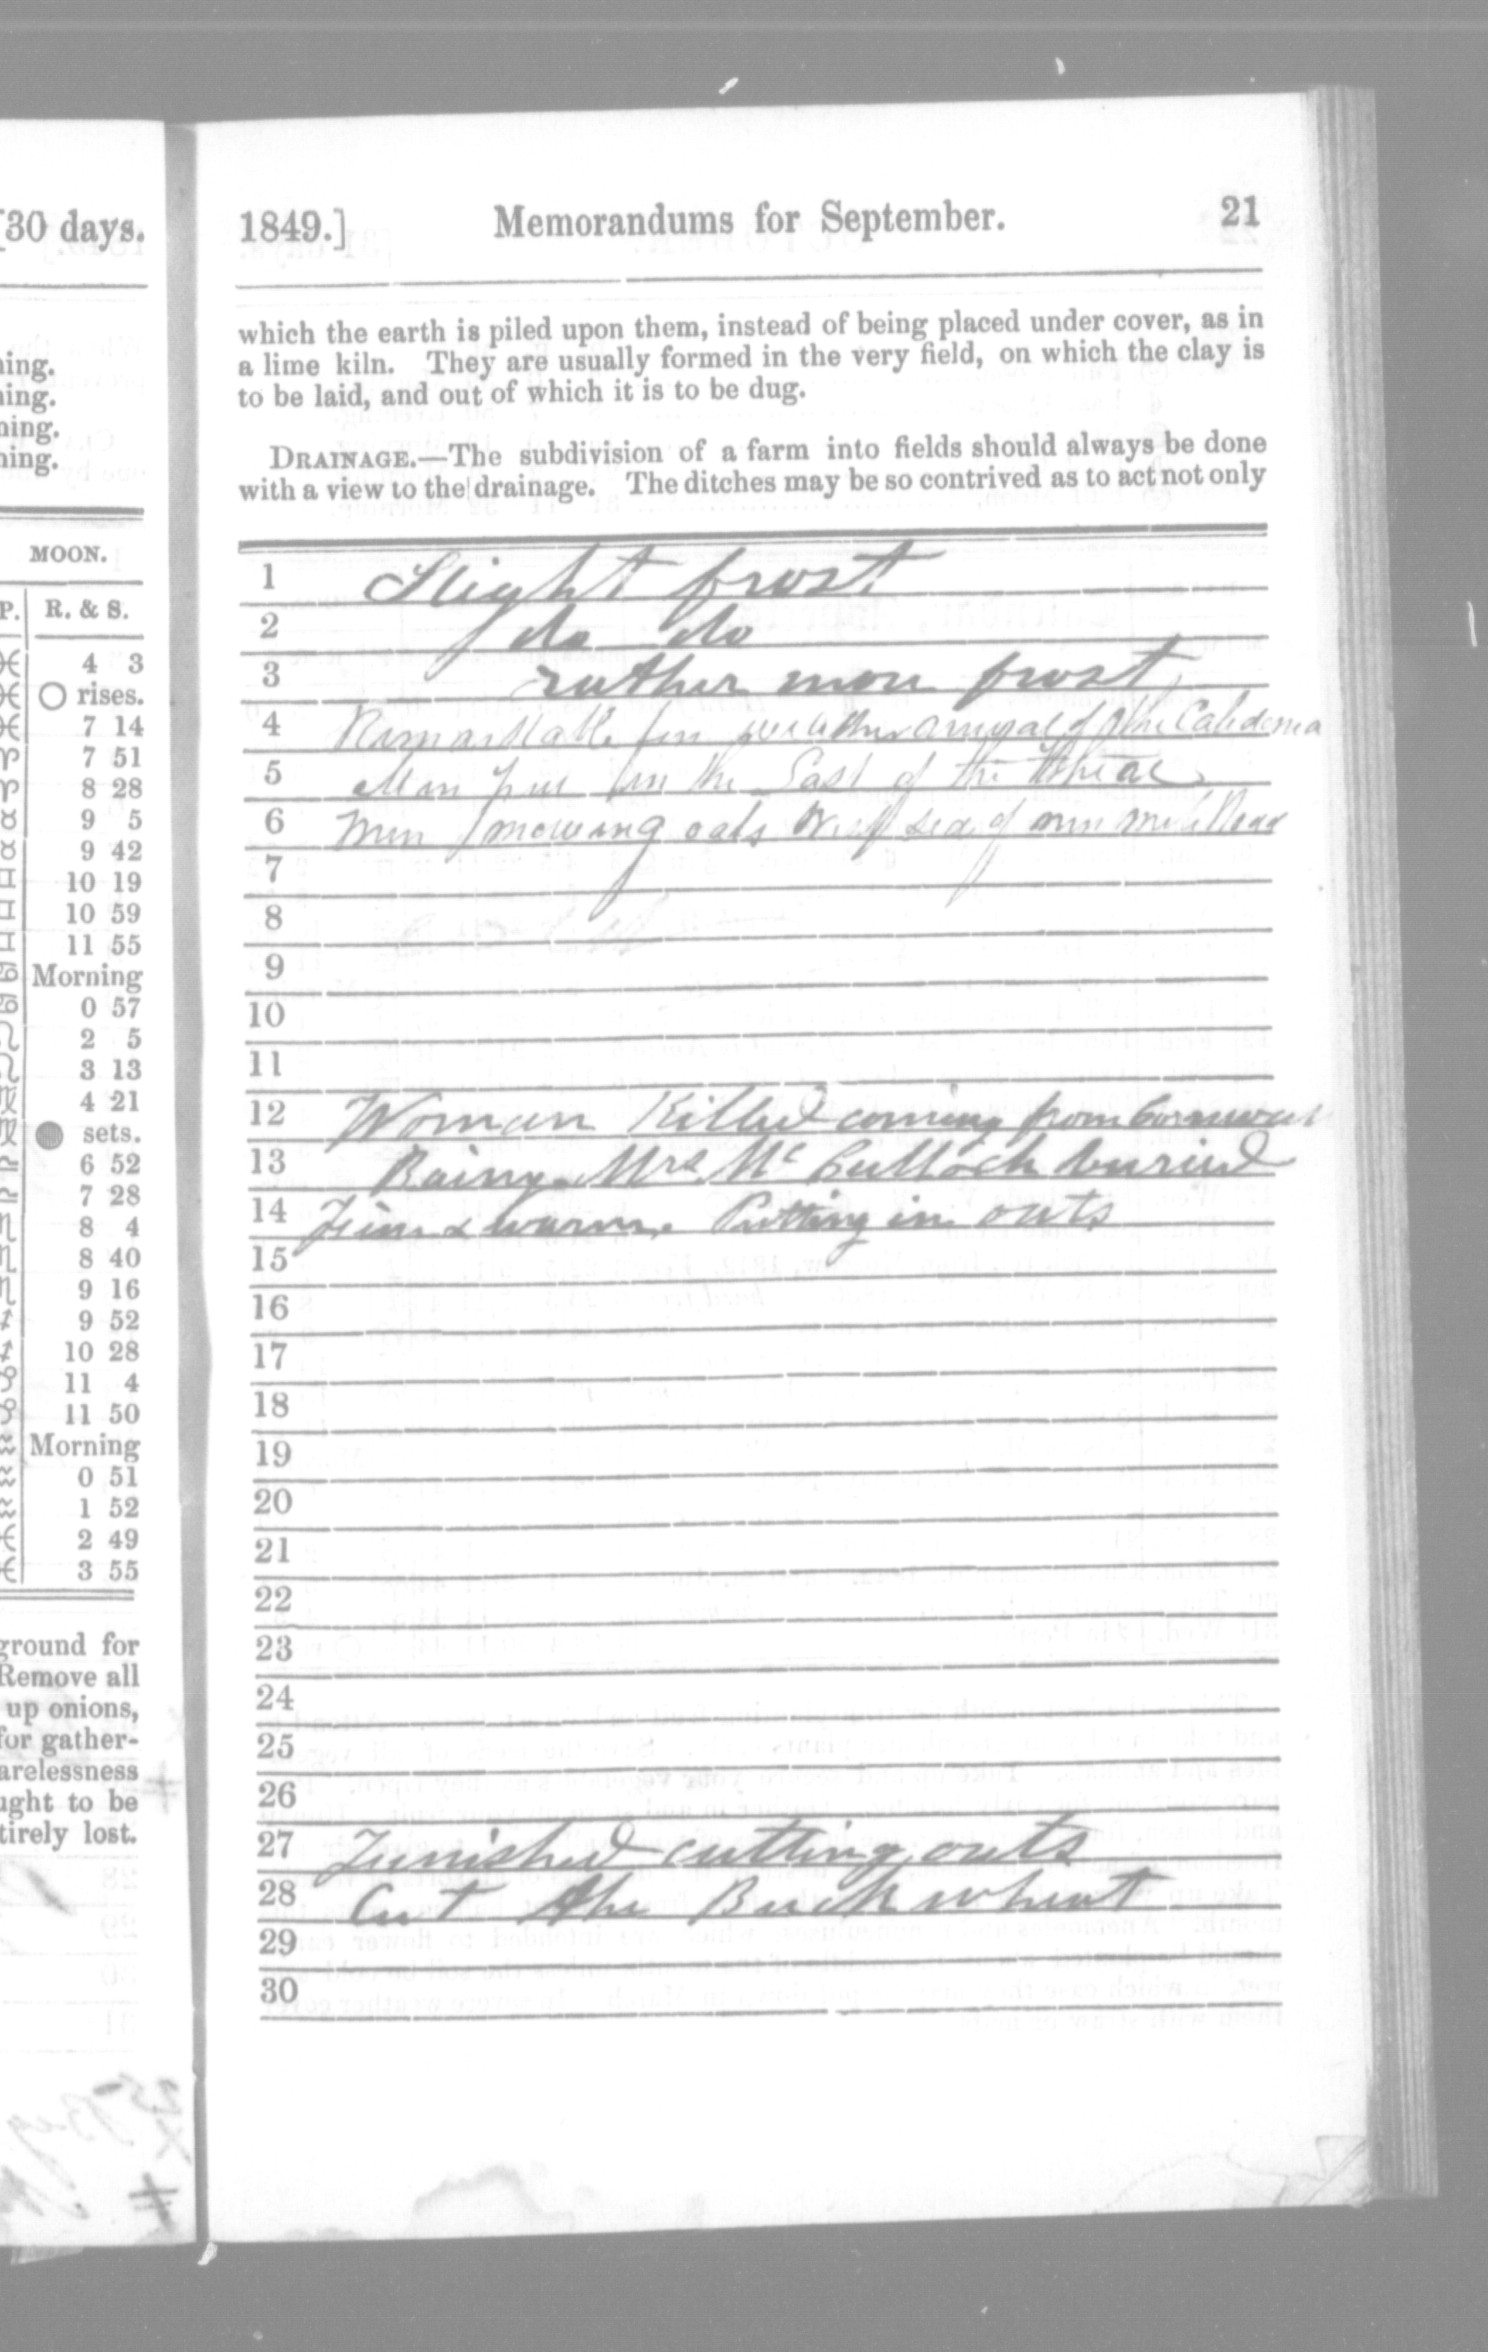 [30 days.
ning.
ning.
ning.
ning.
MOON.
P. R. & S.
4 3
rises.
7 14
7 51
8 28
9 5
9 42
10 19
10 59
11 55
Morning
0 57
2 5
3 13
4 21
sets.
6 52
7 28
8 4
8 40
9 16
9 52
10 28
11 4
11 50
Morning
0 51
1 52
2 49
3 55
ground for
Remove all
up onions,
for gather-
arelessness
ught to be
tirely lost.
1849.] Memorandums for September. 21
which the earth is piled upon them, instead of being placed under cover, as in
a lime kiln. They are usually formed in the very field, on which the clay is
to be laid, and out of which it is to be dug.
DRAINAGE.—The subdivision of a farm into fields should always be done
with a view to the drainage. The ditches may be so contrived as to act not only
1 Slight frost
2 do do
3 rather more frost
4 Remarkable weather arrival of the Caledonia
5 in the East of the
6 Men mowing oats of
7
8
9
10
11
12 Woman Killed coming from Cornwall
13 Rainy. Mrs. Mc Culloch buried
14 Fine & warm. Putting in oats
15
16
17
18
19
20
21
22
23
24
25
26
27 Finished cutting oats
28 Cut the Buckwheat
29
30